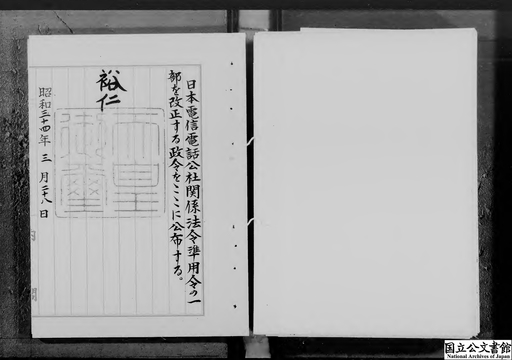 日本電信電話公社関係法令準用令の一
部を改正する政令をここに公布する。
裕仁
天皇
御璽
昭和三十四年三月二十八日
国立公文書館
National Archives of Japan